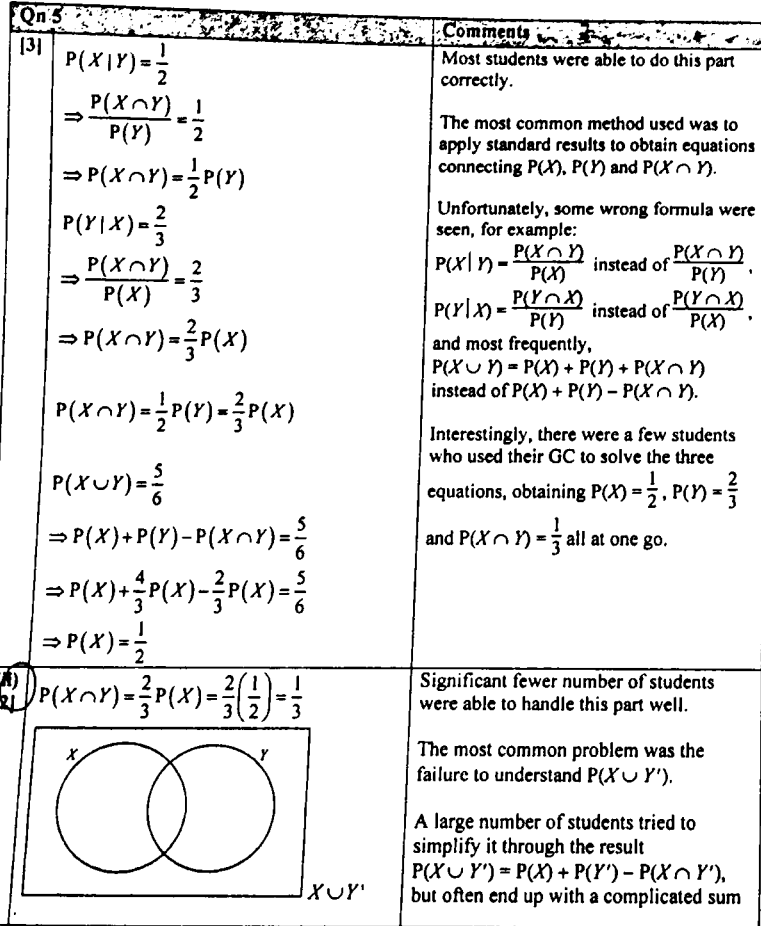 Qn 5
Comments
[3]
P(X|Y) = 1/2
⇒ P(X∩Y)/P(Y) = 1/2
⇒ P(X∩Y) = 1/2 P(Y)
P(Y|X) = 2/3
⇒ P(X∩Y)/P(X) = 2/3
⇒ P(X∩Y) = 2/3 P(X)
P(X∩Y) = 1/2 P(Y) = 2/3 P(X)
P(X∪Y) = 5/6
⇒ P(X)+P(Y)−P(X∩Y) = 5/6
⇒ P(X)+4/3 P(X)−2/3 P(X) = 5/6
⇒ P(X) = 1/2
Most students were able to do this part
correctly.
The most common method used was to
apply standard results to obtain equations
connecting P(X), P(Y) and P(X ∩ Y).
Unfortunately, some wrong formula were
seen, for example:
P(X| Y) = P(X ∩ Y)/P(X) instead of P(X ∩ Y)/P(Y),
P(Y| X) = P(Y ∩ X)/P(Y) instead of P(Y ∩ X)/P(X),
and most frequently,
P(X ∪ Y) = P(X) + P(Y) + P(X ∩ Y)
instead of P(X) + P(Y) − P(X ∩ Y).
Interestingly, there were a few students
who used their GC to solve the three
equations, obtaining P(X) = 1/2, P(Y) = 2/3
and P(X ∩ Y) = 1/3 all at one go.
P(X∩Y) = 2/3 P(X) = 2/3(1/2) = 1/3
X
Y
X∪Y'
Significant fewer number of students
were able to handle this part well.
The most common problem was the
failure to understand P(X ∪ Y').
A large number of students tried to
simplify it through the result
P(X ∪ Y') = P(X) + P(Y') − P(X ∩ Y'),
but often end up with a complicated sum